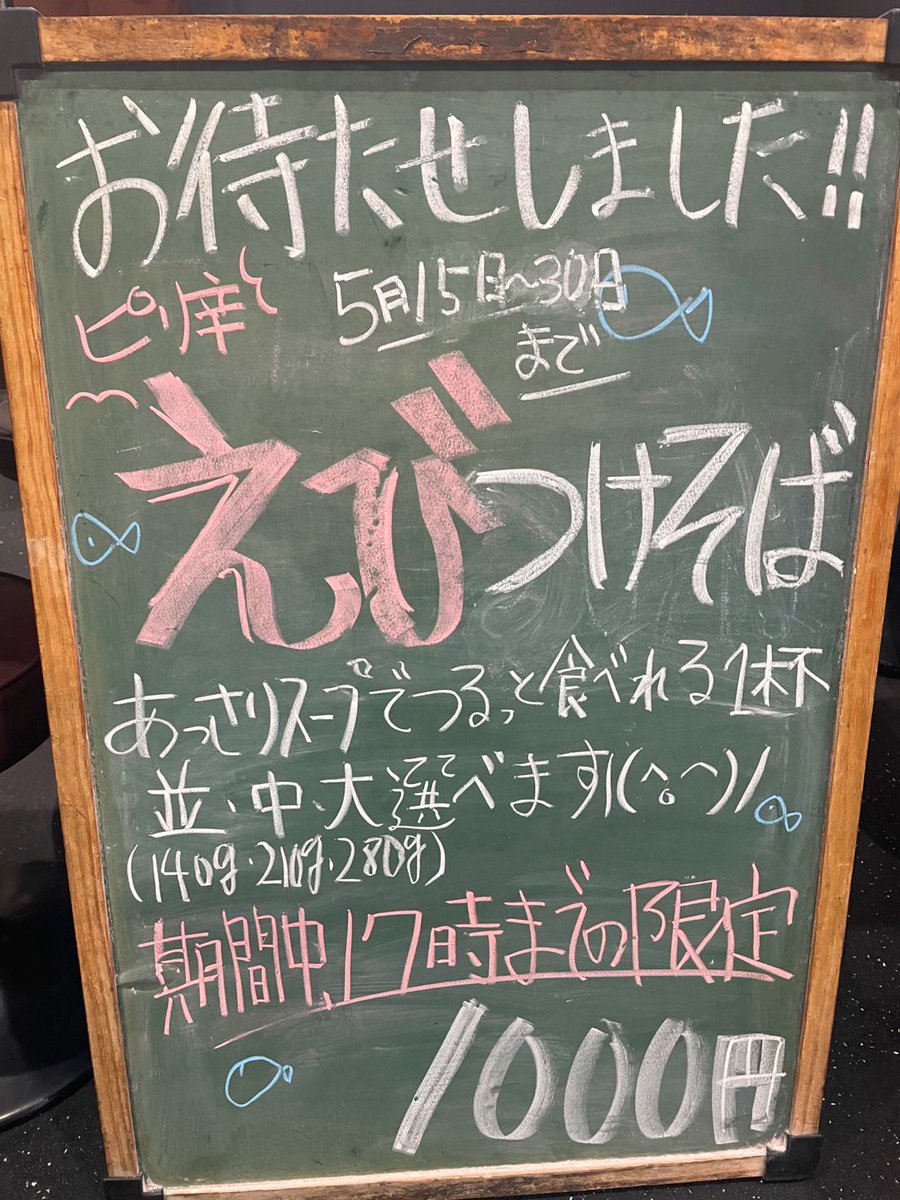 お待たせしました!!
ピリ辛 5月15日〜30日
まで
えびつけそば
あっさりスープでつるっと食べれる1杯
並・中・大選べます!(^。^)/
(140g・210g・280g)
期間中、17時までの限定
1000円